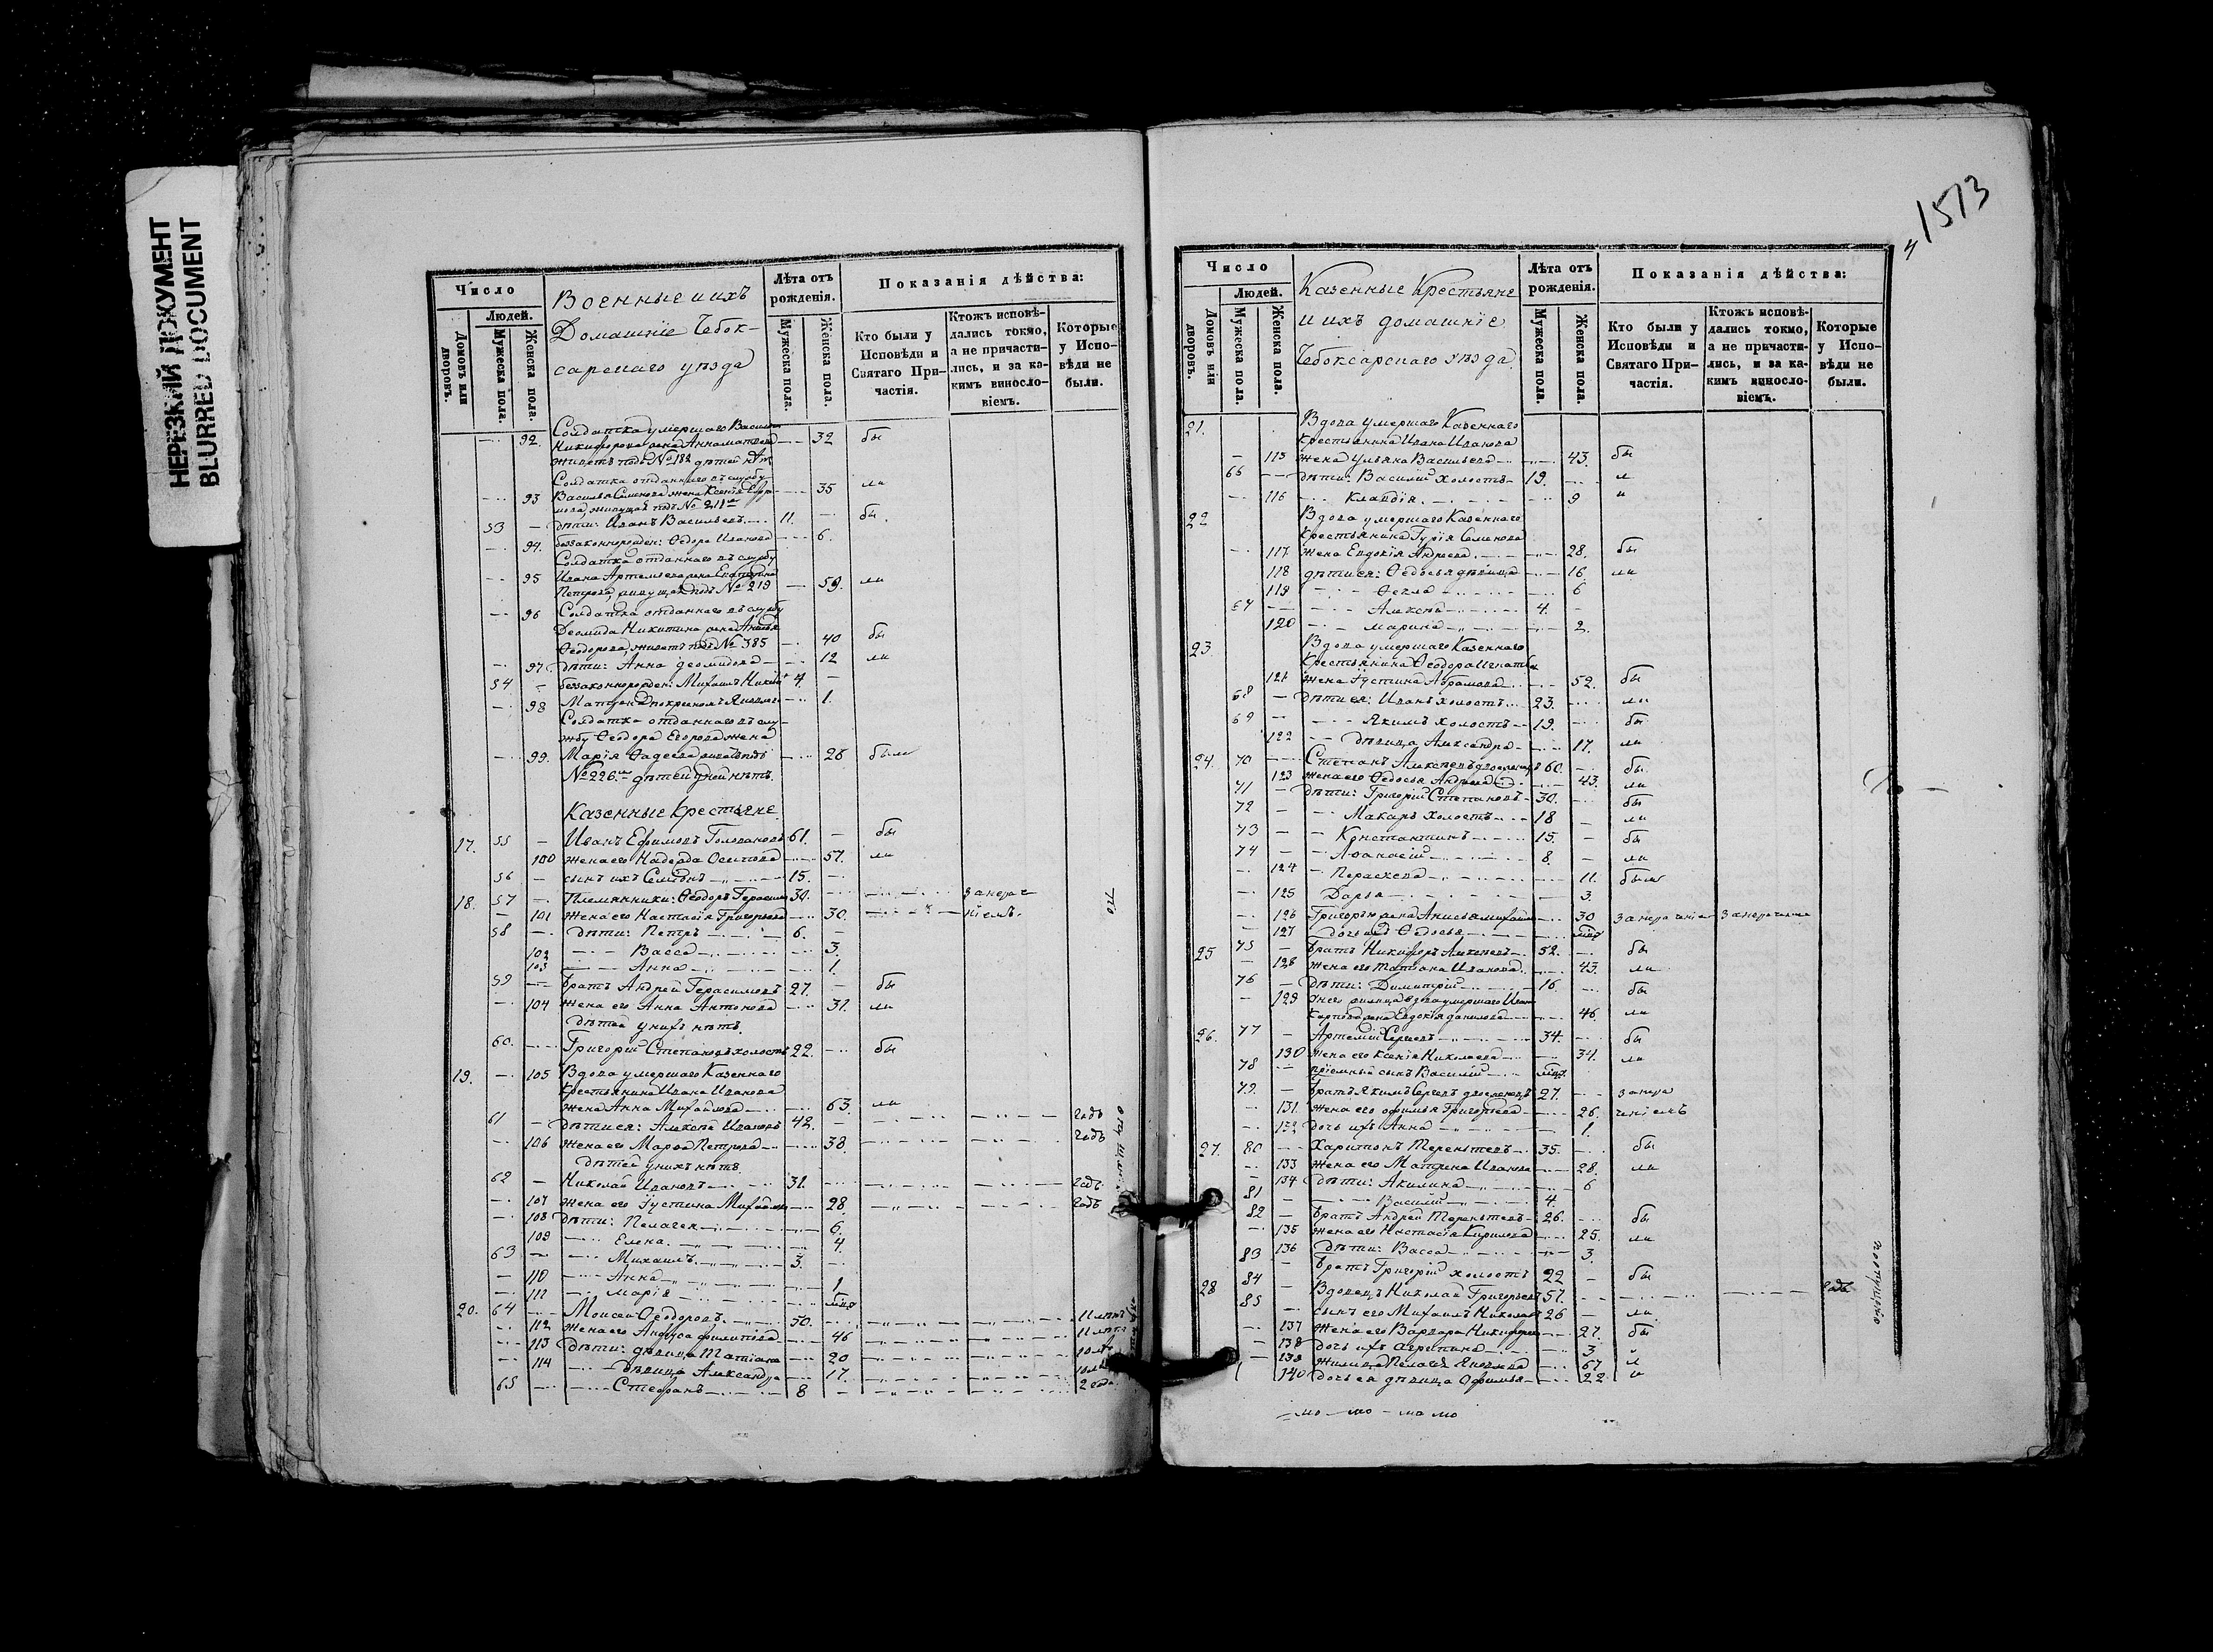 НЕРЕЗКИЙ ДОКУМЕНТ
BLURRED DOCUMENT
Число
Людей.
Домовъ или дворовъ.
Мужеска пола.
Женска пола.
Военные и ихъ
Домашніе Чебок-
сарскаго уѣзда
Лѣта отъ рожденія.
Мужеска пола.
Женска пола.
Показанія дѣйства:
Кто были у Исповѣди и Святаго Причастія.
Ктожъ исповѣ-
дались токмо,
а не причасти-
лись, и за ка-
кимъ винословіемъ.
Которые
у Испо-
вѣди не
были.
— 92. Солдатка умершаго Василья
Никифорова жена Анна Матвеева — 32 бы
живетъ подъ № 182 дѣтей нѣтъ
Солдатка отданнаго въ службу
— 93 Василья Семенова жена Ксенія — 35 ли
живущая подъ № 211
53 — дѣти: Иванъ Васильевъ 11. — бы
— 94. беззаконнорожден: Ѳедора Иванова — 6.
Солдатка отданнаго въ службу
— 95 Ивана Артемьева жена Екатерина
Петрова, живущая подъ № 219 — 59. ли
— 96 Солдатка отданнаго въ службу
Деомида Никитина жена
Ѳеодорова, живетъ подъ № 385 — 40 бы
— 97 дѣти: Анна Деомидова — 12 ли
54 — беззаконнорожден: Михаилъ 4. —
— 98 Матрена — 1.
Солдатка отданнаго въ слу-
жбу Ѳеодора Егорова жена
— 99. Марія Ѳадеева — 26 были
№ 226 дѣтей у ней нѣтъ.
Казенные Крестьяне
17. 55 — Иванъ Ефимовъ Головановъ 61. — бы
100 жена его Надежда Осипова — 57. ли
56 — сынъ ихъ Семенъ 15. —
18. 57 — Племянники: Ѳеодоръ Герасимовъ 30. —
— 101 Жена его Настасія Григорьева — 30.
58 — дѣти: Петръ 6. —
102 — Васса — 3.
103 — Анна — 1.
59 — братъ Андрей Герасимовъ 27. — бы
— 104 жена его Анна Антонова — 31. ли
дѣтей у нихъ нѣтъ.
60. — Григорій Степановъ холостъ 22. — бы
19. — 105 Вдова умершаго Казеннаго
Крестьянина Ивана Иванова
жена Анна Михайлова — 63. ли
61 — дѣти ея: Алексѣй Ивановъ 42. — годъ
— 106 жена его Марѳа Петрова — 38. годъ
дѣтей у нихъ нѣтъ.
62 — Николай Ивановъ 31. — годъ
— 107 жена его Іустина Михайлова — 28. годъ
— 108 дѣти: Пелагея — 6.
109 — Елена — 4.
63 — Михаилъ 3. —
— 110 — Анна — 1
— 111 — Марія —
20. 64 — Моисей Ѳеодоровъ 50. — 11 лѣтъ
— 112 жена его Филипова — 46 11 лѣтъ
— 113 дѣти: дѣвица Татіана — 20
— 114 — дѣвица Александра — 17.
65 — Стефанъ 8 — 2 года
1513
Число
Людей.
Домовъ или дворовъ.
Мужеска пола.
Женска пола.
Казенные Крестьяне
и ихъ домашніе
Чебоксарскаго уѣзда
Лѣта отъ рожденія.
Мужеска пола.
Женска пола.
Показанія дѣйства:
Кто были у Исповѣди и Святаго Причастія.
Ктожъ исповѣ-
дались токмо,
а не причасти-
лись, и за ка-
кимъ винословіемъ.
Которые
у Испо-
вѣди не
были.
21. Вдова умершаго Казеннаго
Крестьянина Ивана Иванова
— 115 жена Ульяна Васильева — 43. бы
66 — дѣти: Василій холостъ 19. —
— 116 — Клавдія — 9
22 Вдова умершаго Казеннаго
Крестьянина Гурія Семенова
— 117 жена Евдокія Андреева — 28. бы
118 дѣти ея: Ѳедосья дѣвица — 16 ли
119 — Ѳекла — 6
67 — Алексѣй 4. —
120 — Марина — 2.
23 Вдова умершаго Казеннаго
Крестьянина Ѳеодора Игнатьева
121 жена Іустина Абрамова — 52. бы
68 — дѣти ея: Иванъ холостъ 23. — ли
69 — Якимъ холостъ 19. — бы
122 — дѣвица Александра — 17. ли
24. 70 — Степанъ Алексѣевъ 60. — бы
123 жена его Ѳедосья Андреева — 43. ли
71 — дѣти: Григорій Степановъ 30. — бы
72 — Макаръ холостъ 18 — ли
73 — Константинъ 15. — бы
74 — Аѳанасій 8. — ли
— 124 Параскева — 11. были
— 125 Дарья — 3.
— 126 Григорью жена Анисья — 30
— 127 дочь ихъ Ѳедосья —
25 75 — братъ Никифоръ Алексѣевъ 52. — бы
— 128 жена его Татіана Иванова — 43. ли
76 — дѣти: Димитрій 16. — бы
— 129 вдова умершаго Ивана
Карпова жена Евдокія Данилова — 46. ли
26. 77 — Артемій Сергеевъ 34. — бы
130 жена его Ксенія Николаева — 34. ли
78 — пріемный сынъ Василій
79. — братъ Якимъ Сергеевъ 27. —
— 131. жена его Офимья Григорьева — 26.
— 132 дочь ихъ Анна — 1.
27. 80 — Харитонъ Терентьевъ 35. — бы
— 133 жена его Матрена Иванова — 28. ли
— 134 дѣти: Акилина — 6
81 — Василій 4.
82 — братъ Андрей Терентьевъ 26. — бы
— 135 жена его Настасія Кирилова — 25. ли
136 дѣти: Васса — 3.
83 — братъ Григорій холостъ 22 — бы
28 84 — Вдовецъ Николай Григорьевъ 57. — годъ
85 — сынъ его Михаилъ Николаевъ 26 — ли
— 137 жена его Варвара Никифорова — 27. бы
— 138 дочь ихъ Агрипина — 3
— 139 — 67.
140 дочь ея дѣвица Офимья — 22.